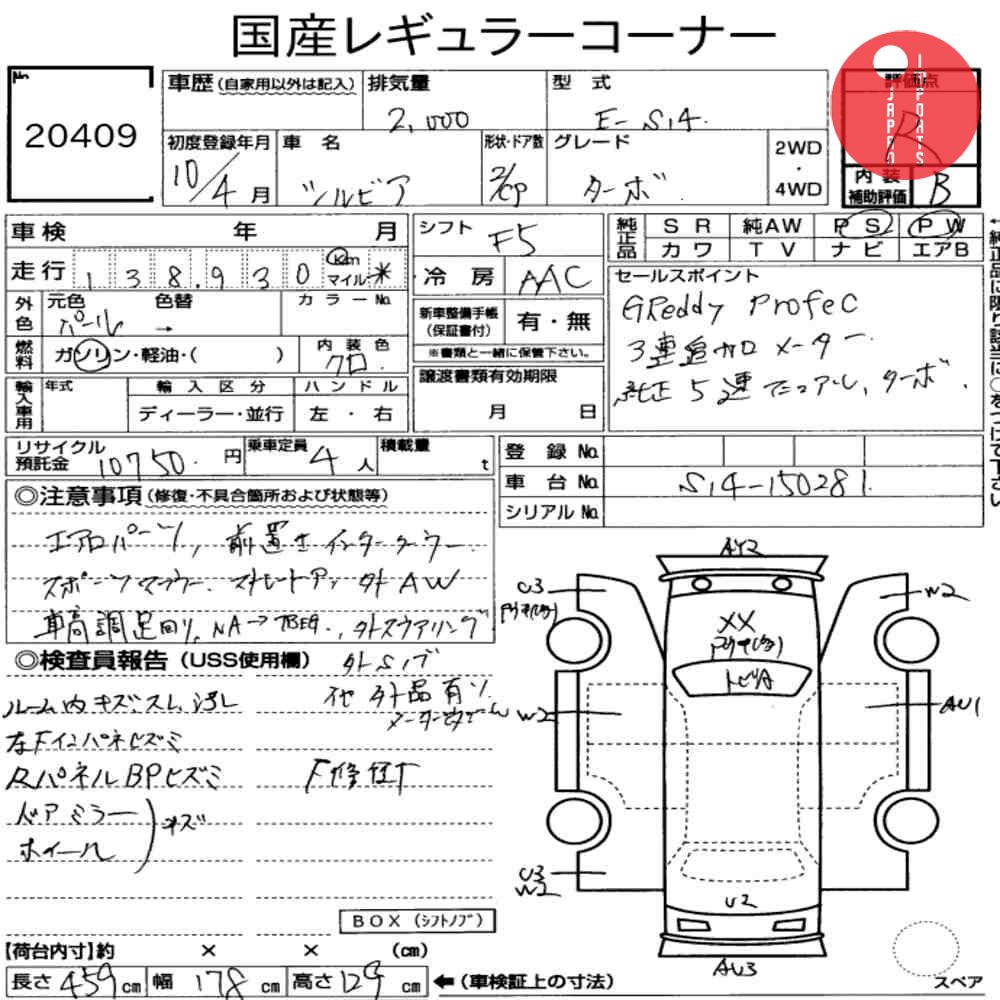 国産レギュラーコーナー
No.
20409
車歴(自家用以外は記入)
排気量
2,000
型 式
E-S14
評価点
R
JAPAN IMPORTS
初度登録年月
10/4月
車 名
シルビア
形状・ドア数
2/CP
グレード
ターボ
2WD
・
4WD
内装
補助評価
B
車検 年 月
シフト
F5
純正品
SR 純AW PS PW
カワ TV ナビ エアB
走行 138,930 km マイル *
冷房
AAC
セールスポイント
GReddy Profec
3連追加メーター
純正5速マニュアル, ターボ.
外色
元色 色替
パール →
カラーNo.
新車整備手帳
(保証書付)
有・無
※書類と一緒に保管下さい。
燃料
ガソリン・軽油・( )
内装色
クロ
譲渡書類有効期限
月 日
輸入車用
年式
輸入区分
ディーラー・並行
ハンドル
左・右
リサイクル
預託金
10750 円
乗車定員
4人
積載量
t
登録No.
車台No.
S14-150281
シリアルNo.
◎注意事項(修復・不具合箇所および状態等)
エアロパーツ, 前置きインタークーラー
スポーツマフラー. ストレートアシ 外AW
車高調足回り, NA→ , 外ステアリング
◎検査員報告(USS使用欄)
外Sノブ
ルーム内キズ、スレ、汚レ
他 外品有リ
右Fインパネヒズミ
RパネルBPヒズミ
F修正有
ドアミラー
ホイール
キズ
BOX(シフトノブ)
【荷台内寸】約 × × (cm)
長さ 459 cm 幅 178 cm 高さ 129 cm
←(車検証上の寸法)
AY2
U3
W2
XX
トビA
W2
AU1
U3
W2
U2
AU3
スペア
←純正品に限り該当に○をつけて下さい